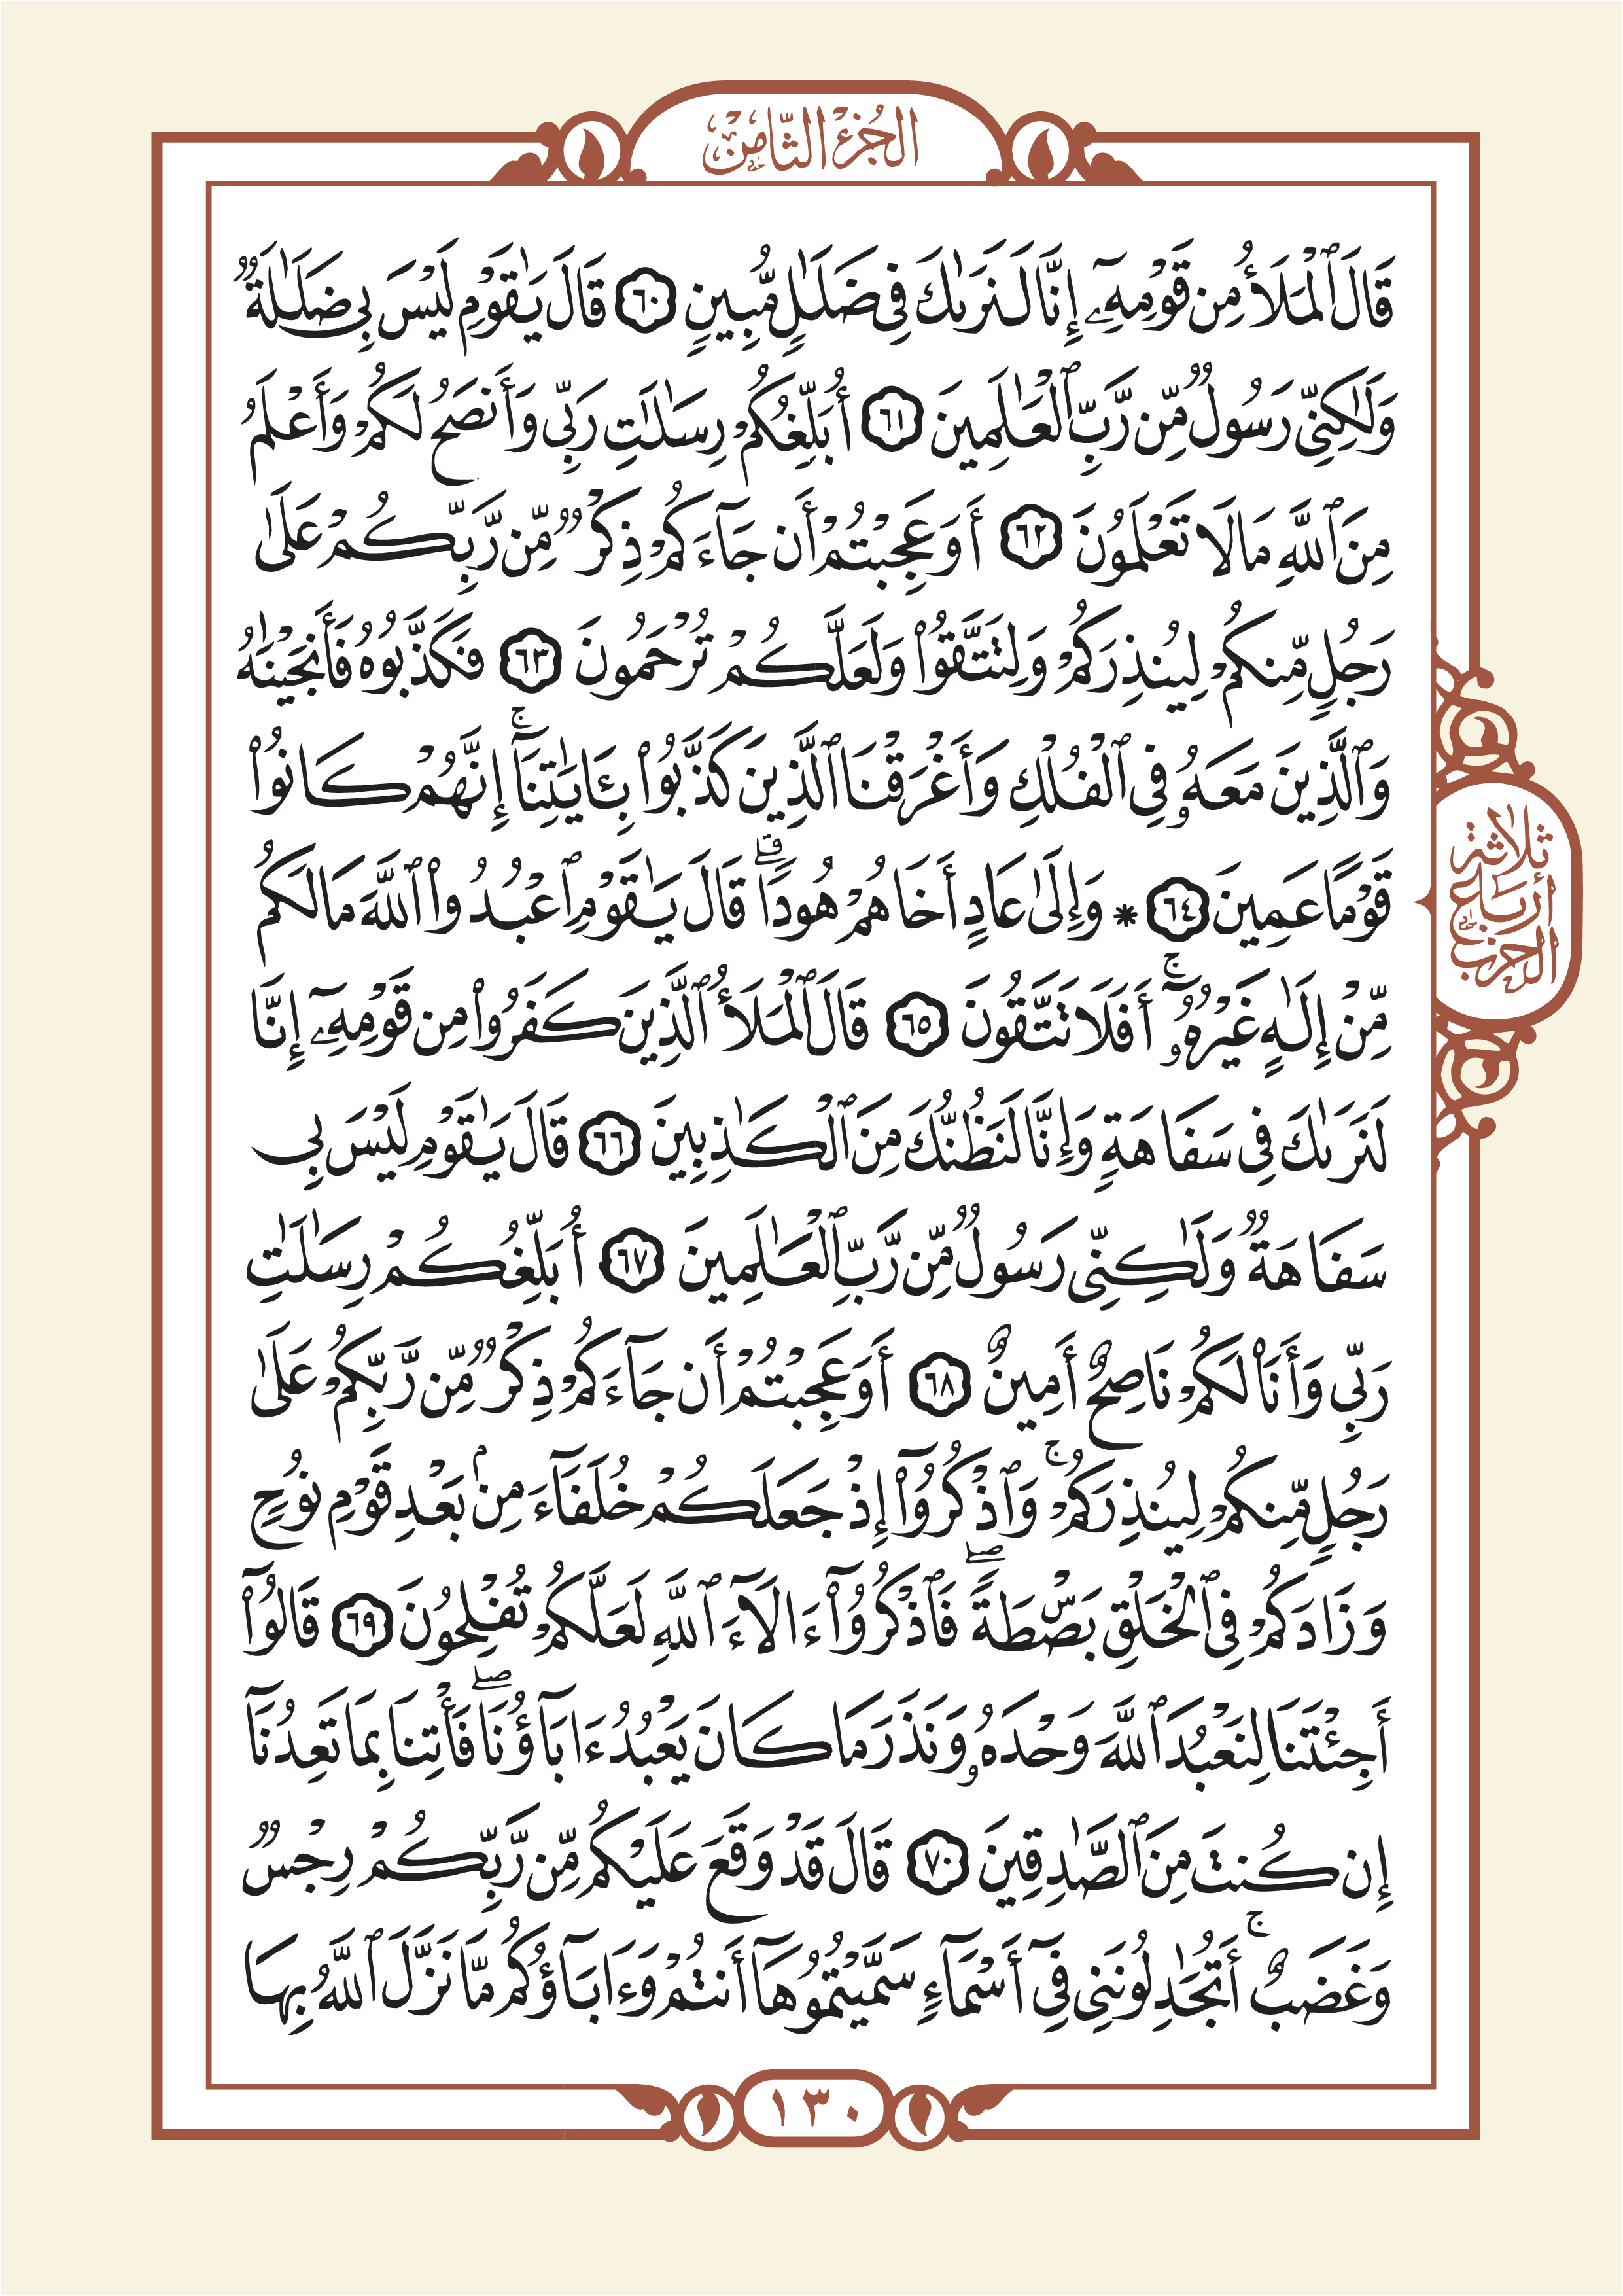 الجُزءُ الثَّامِنُ
قَالَ ٱلْمَلَأُ مِن قَوْمِهِۦٓ إِنَّا لَنَرَىٰكَ فِى ضَلَـٰلٍ مُّبِينٍ ٦٠ قَالَ يَـٰقَوْمِ لَيْسَ بِى ضَلَـٰلَةٌ
وَلَـٰكِنِّى رَسُولٌ مِّن رَّبِّ ٱلْعَـٰلَمِينَ ٦١ أُبَلِّغُكُمْ رِسَـٰلَـٰتِ رَبِّى وَأَنصَحُ لَكُمْ وَأَعْلَمُ
مِنَ ٱللَّهِ مَا لَا تَعْلَمُونَ ٦٢ أَوَعَجِبْتُمْ أَن جَآءَكُمْ ذِكْرٌ مِّن رَّبِّكُمْ عَلَىٰ
رَجُلٍ مِّنكُمْ لِيُنذِرَكُمْ وَلِتَتَّقُوا۟ وَلَعَلَّكُمْ تُرْحَمُونَ ٦٣ فَكَذَّبُوهُ فَأَنجَيْنَـٰهُ
وَٱلَّذِينَ مَعَهُۥ فِى ٱلْفُلْكِ وَأَغْرَقْنَا ٱلَّذِينَ كَذَّبُوا۟ بِـَٔايَـٰتِنَآ ۚ إِنَّهُمْ كَانُوا۟
قَوْمًا عَمِينَ ٦٤ * وَإِلَىٰ عَادٍ أَخَاهُمْ هُودًا ۗ قَالَ يَـٰقَوْمِ ٱعْبُدُوا۟ ٱللَّهَ مَا لَكُم
مِّنْ إِلَـٰهٍ غَيْرُهُۥٓ ۚ أَفَلَا تَتَّقُونَ ٦٥ قَالَ ٱلْمَلَأُ ٱلَّذِينَ كَفَرُوا۟ مِن قَوْمِهِۦٓ إِنَّا
لَنَرَىٰكَ فِى سَفَاهَةٍ وَإِنَّا لَنَظُنُّكَ مِنَ ٱلْكَـٰذِبِينَ ٦٦ قَالَ يَـٰقَوْمِ لَيْسَ بِى
سَفَاهَةٌ وَلَـٰكِنِّى رَسُولٌ مِّن رَّبِّ ٱلْعَـٰلَمِينَ ٦٧ أُبَلِّغُكُمْ رِسَـٰلَـٰتِ
رَبِّى وَأَنَا۠ لَكُمْ نَاصِحٌ أَمِينٌ ٦٨ أَوَعَجِبْتُمْ أَن جَآءَكُمْ ذِكْرٌ مِّن رَّبِّكُمْ عَلَىٰ
رَجُلٍ مِّنكُمْ لِيُنذِرَكُمْ ۚ وَٱذْكُرُوٓا۟ إِذْ جَعَلَكُمْ خُلَفَآءَ مِنۢ بَعْدِ قَوْمِ نُوحٍ
وَزَادَكُمْ فِى ٱلْخَلْقِ بَصْۜطَةً ۖ فَٱذْكُرُوٓا۟ ءَالَآءَ ٱللَّهِ لَعَلَّكُمْ تُفْلِحُونَ ٦٩ قَالُوٓا۟
أَجِئْتَنَا لِنَعْبُدَ ٱللَّهَ وَحْدَهُۥ وَنَذَرَ مَا كَانَ يَعْبُدُ ءَابَآؤُنَا ۖ فَأْتِنَا بِمَا تَعِدُنَآ
إِن كُنتَ مِنَ ٱلصَّـٰدِقِينَ ٧٠ قَالَ قَدْ وَقَعَ عَلَيْكُم مِّن رَّبِّكُمْ رِجْسٌ
وَغَضَبٌ ۚ أَتُجَـٰدِلُونَنِى فِىٓ أَسْمَآءٍ سَمَّيْتُمُوهَآ أَنتُمْ وَءَابَآؤُكُم مَّا نَزَّلَ ٱللَّهُ بِهَا
ثلاثة
أرباع
الحزب
١٣٠